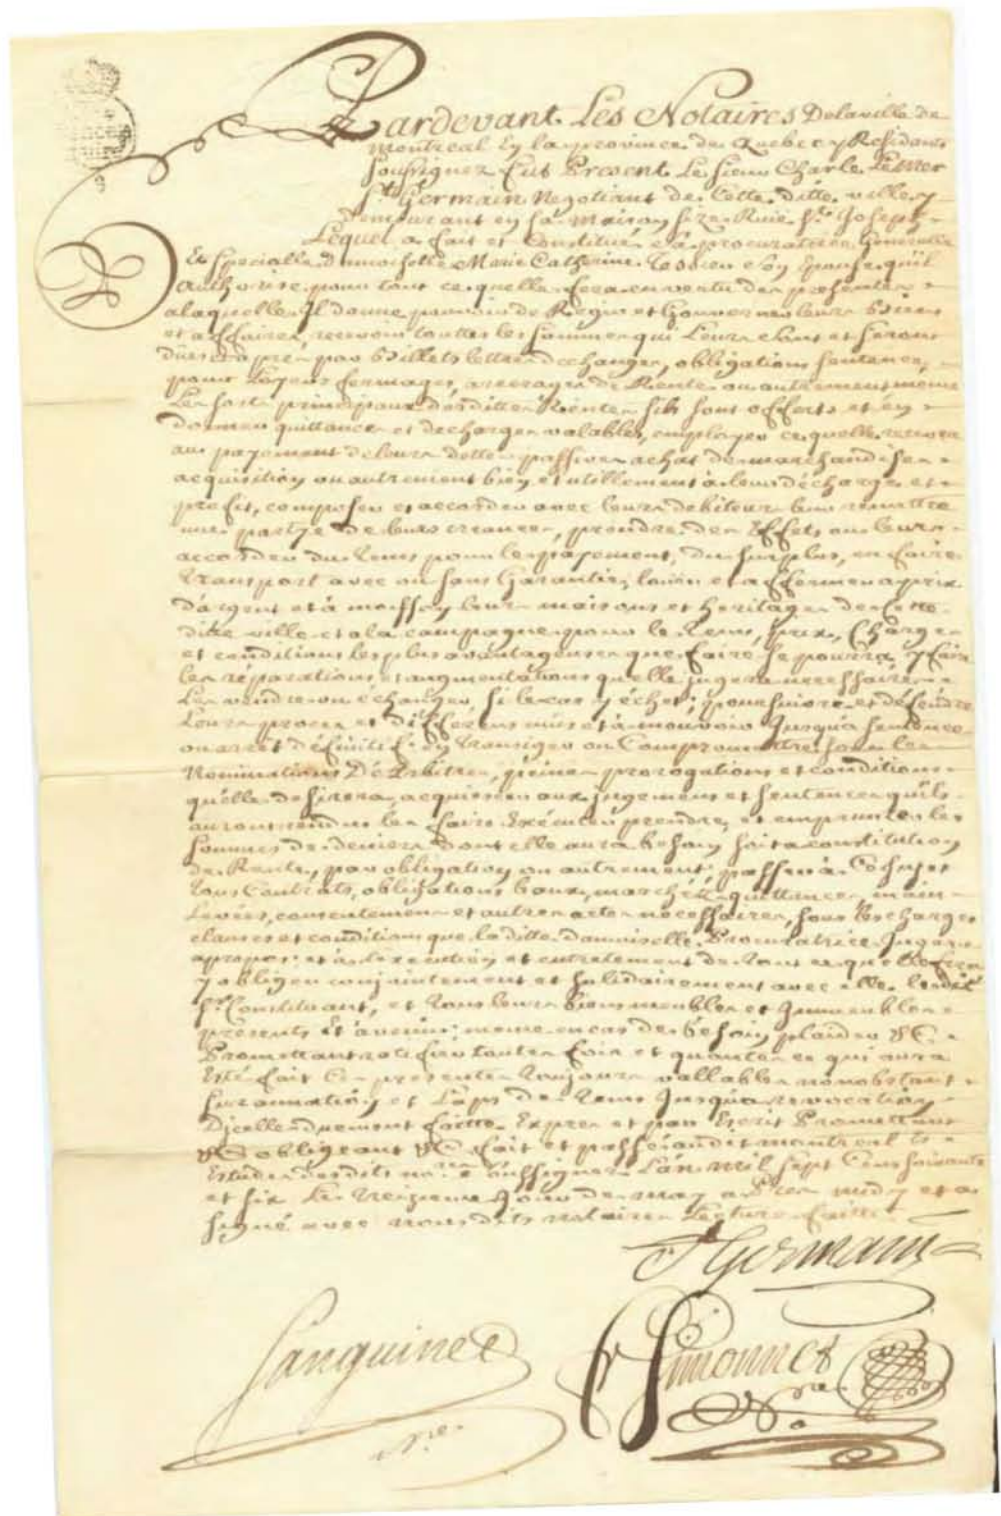 Pardevant Les Notaires Delaville de
Montreal En la province de Quebec y Residants
Soussignez Fut Present Le Sieur Charle Lemer
St. Germain Negotiant de Cette ditte ville y
Demeurant en sa maison size Rue St. Joseph
Lequel a fait et Constitué sa procuratrice Generalle
Et Specialle Damoiselle Marie Catherine Tessier Son Epouse qu'il
Authorise pour tout ce quelle fera en vertu des presentes
alaquelle Il donne pouvoir de Regir et Gouverner leurs Biens
et affaires, recevoir touttes les sommes qui Leurs sont et seront
dues cy apres par Billets lettres de changes, obligations sentences,
pour Loyers fermages, arrerages de Rente ou autrement meme
Les sorts principaux desdittes Rentes sils sont offerts et en
donner quittances et decharges valables, employer ce quelle recevra
au payement de leurs dettes passives achat de marchandises
acquisition ou autrement bien et utillement à leur décharge et
profit, composer et accorder avec leurs debiteurs leur remettre
une partye de leurs creances, prendre des Effets ou leurs
accorder du tems pour le payement, du surplus, en faire
transport avec ou sans Garantie, louer et affermer a prix
d'argent et à moisson leurs maisons et heritages de Cette
ditte ville et a la campagne pour le tems, prix, Charges
et conditions les plus avantageuses que faire se pourra y faire
les réparations et augmentations quelle jugera necessaires
Les vendre ou échanger, si le cas y échet; poursuivre et défendre
Leurs procés et differens mus et à mouvoir Jusqu'a sentence
ou arrêt définitif en transiger ou Compromettre sous les
Nominations D'Arbitres, peines prorogations et conditions
qu'elle desirera, acquiescer aux jugemens et sentences qu'ils
auront rendus les faire Exécuter prendre, et emprunter les
sommes de deniers dont elle aura besoin soit a constitution
de Rente, par obligation ou autrement, passer à Ce sujet
tous Contrats, obligations, baux, marchés quittances, main
Levées, consentemens et autres actes necessaires, sous les charges
clauses et conditions que la ditte damoiselle Procuratrice Jugera
apropos; et à l'execution et entretement de tout ce que
y obliger conjointement et solidairement avec elle ledit
Sr. Constituant, et tous leurs biens meubles et Immeubles
presents Et avenir; meme en cas de besoin plaider &c.
Promettant ratifier toutes fois et quantes ce qui aura
Esté fait Ces presentes toujours vallables nonobstant
surannation et Laps de tems Jusqu'a revocation
D'icelle duement faitte Expres et par Escrit Promettant
&c obligeant &c fait et passé audit montreal Es
Estudes desdits nores. soussignez L'an mil sept Cens soixante
et six Le treizieme Jour de may apres midy et a
signé avec nous dits notaires Lecture faitte
St Germain
Sanguinet
Nre.
Simonnet
Nre.